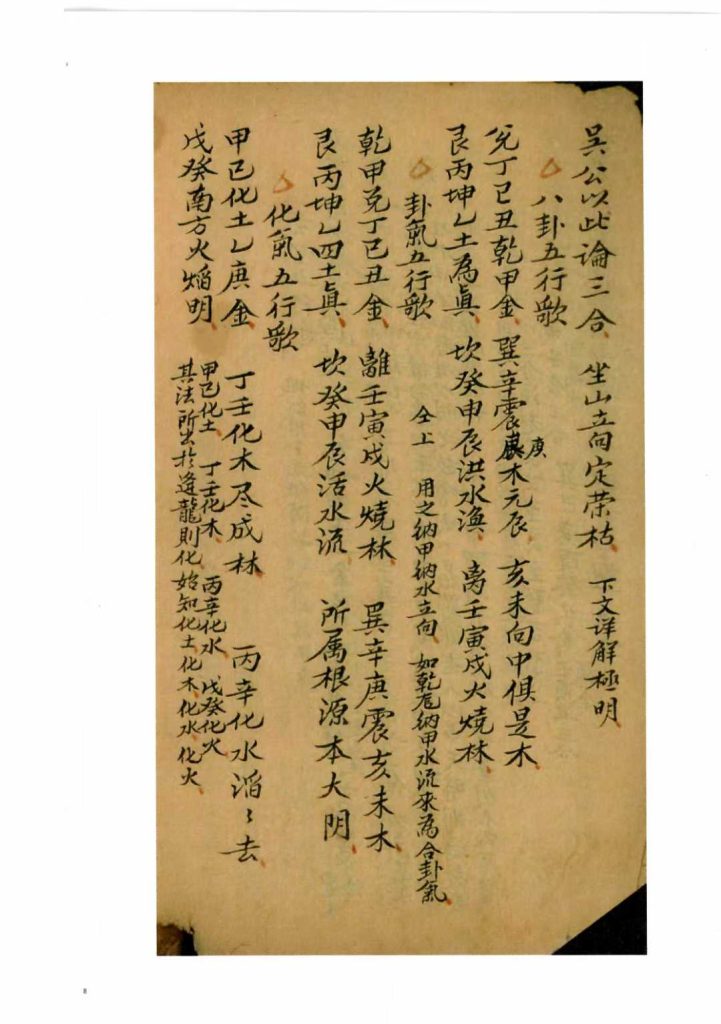 吴公以此論三合、坐山立向定荣枯、下文详解極明
八卦五行歌
兊丁巳丑乾甲金、巽辛震庚木元辰、亥未向中俱是木、
艮丙坤乙土為真、坎癸申辰洪水渙、离壬寅戌火燒林、
卦氣五行歌 仝上 用之纳甲纳水立向、如乾龙纳甲水流來為合卦氣、
乾甲兑丁巳丑金、離壬寅戌火燒林、巽辛庚震亥未木、
艮丙坤乙四土真、坎癸申辰活水流、所属根源本大阴、
化氣五行歌
甲己化土乙庚金、丁壬化木尽成林、丙辛化水滔〻去、
戊癸南方火焰明、甲己化土、丁壬化木、丙辛化水、戊癸化火、
其法所出於逢龍則化、始知化土化木、化水、化火、
8